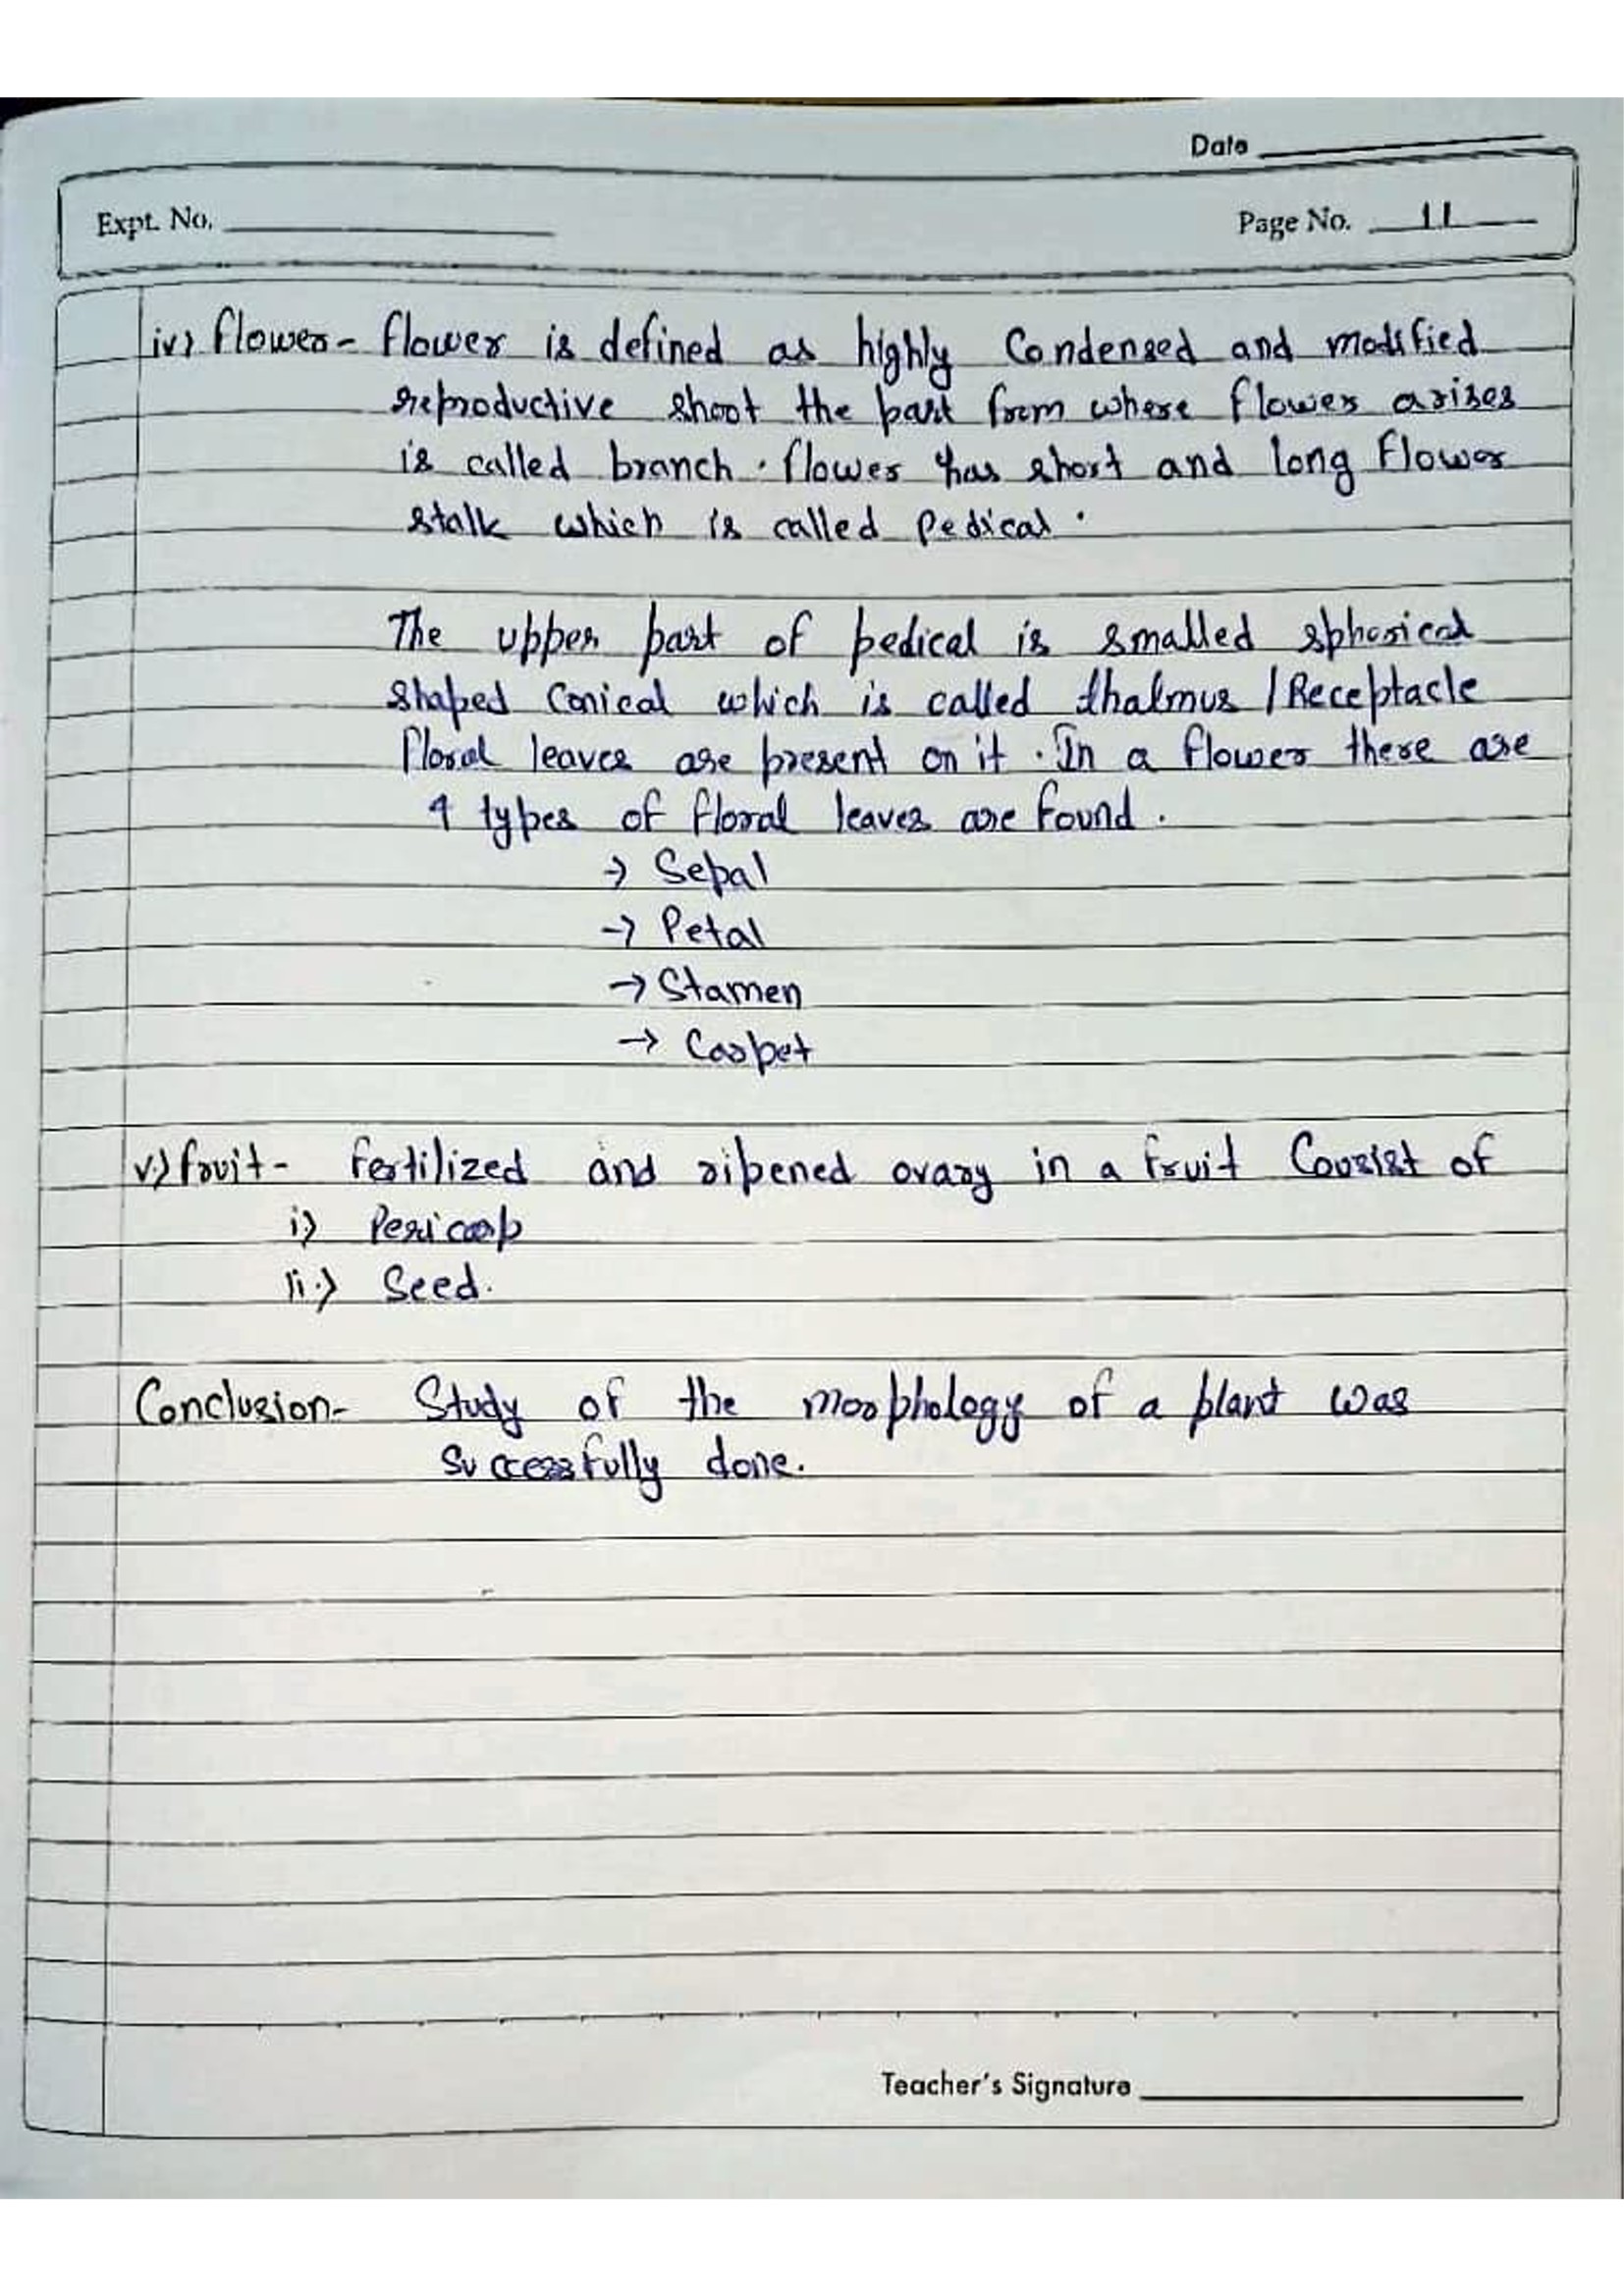 Date
Expt. No.
Page No. 11
iv) flower - flower is defined as highly Condensed and modified
reproductive shoot the part from where flower arises
is called branch. flower has short and long flower
stalk which is called pedical.
The upper part of pedical is smalled spherical
shaped conical which is called thalmus / Receptacle
floral leaves are present on it. In a flower there are
4 types of floral leaves are found.
→ Sepal
→ Petal
→ Stamen
→ Carpet
v.) fruit - fertilized and ripened ovary in a fruit Consist of
i) Pericarp
ii.) Seed.
Conclusion- Study of the morphology of a plant was
successfully done.
Teacher's Signature